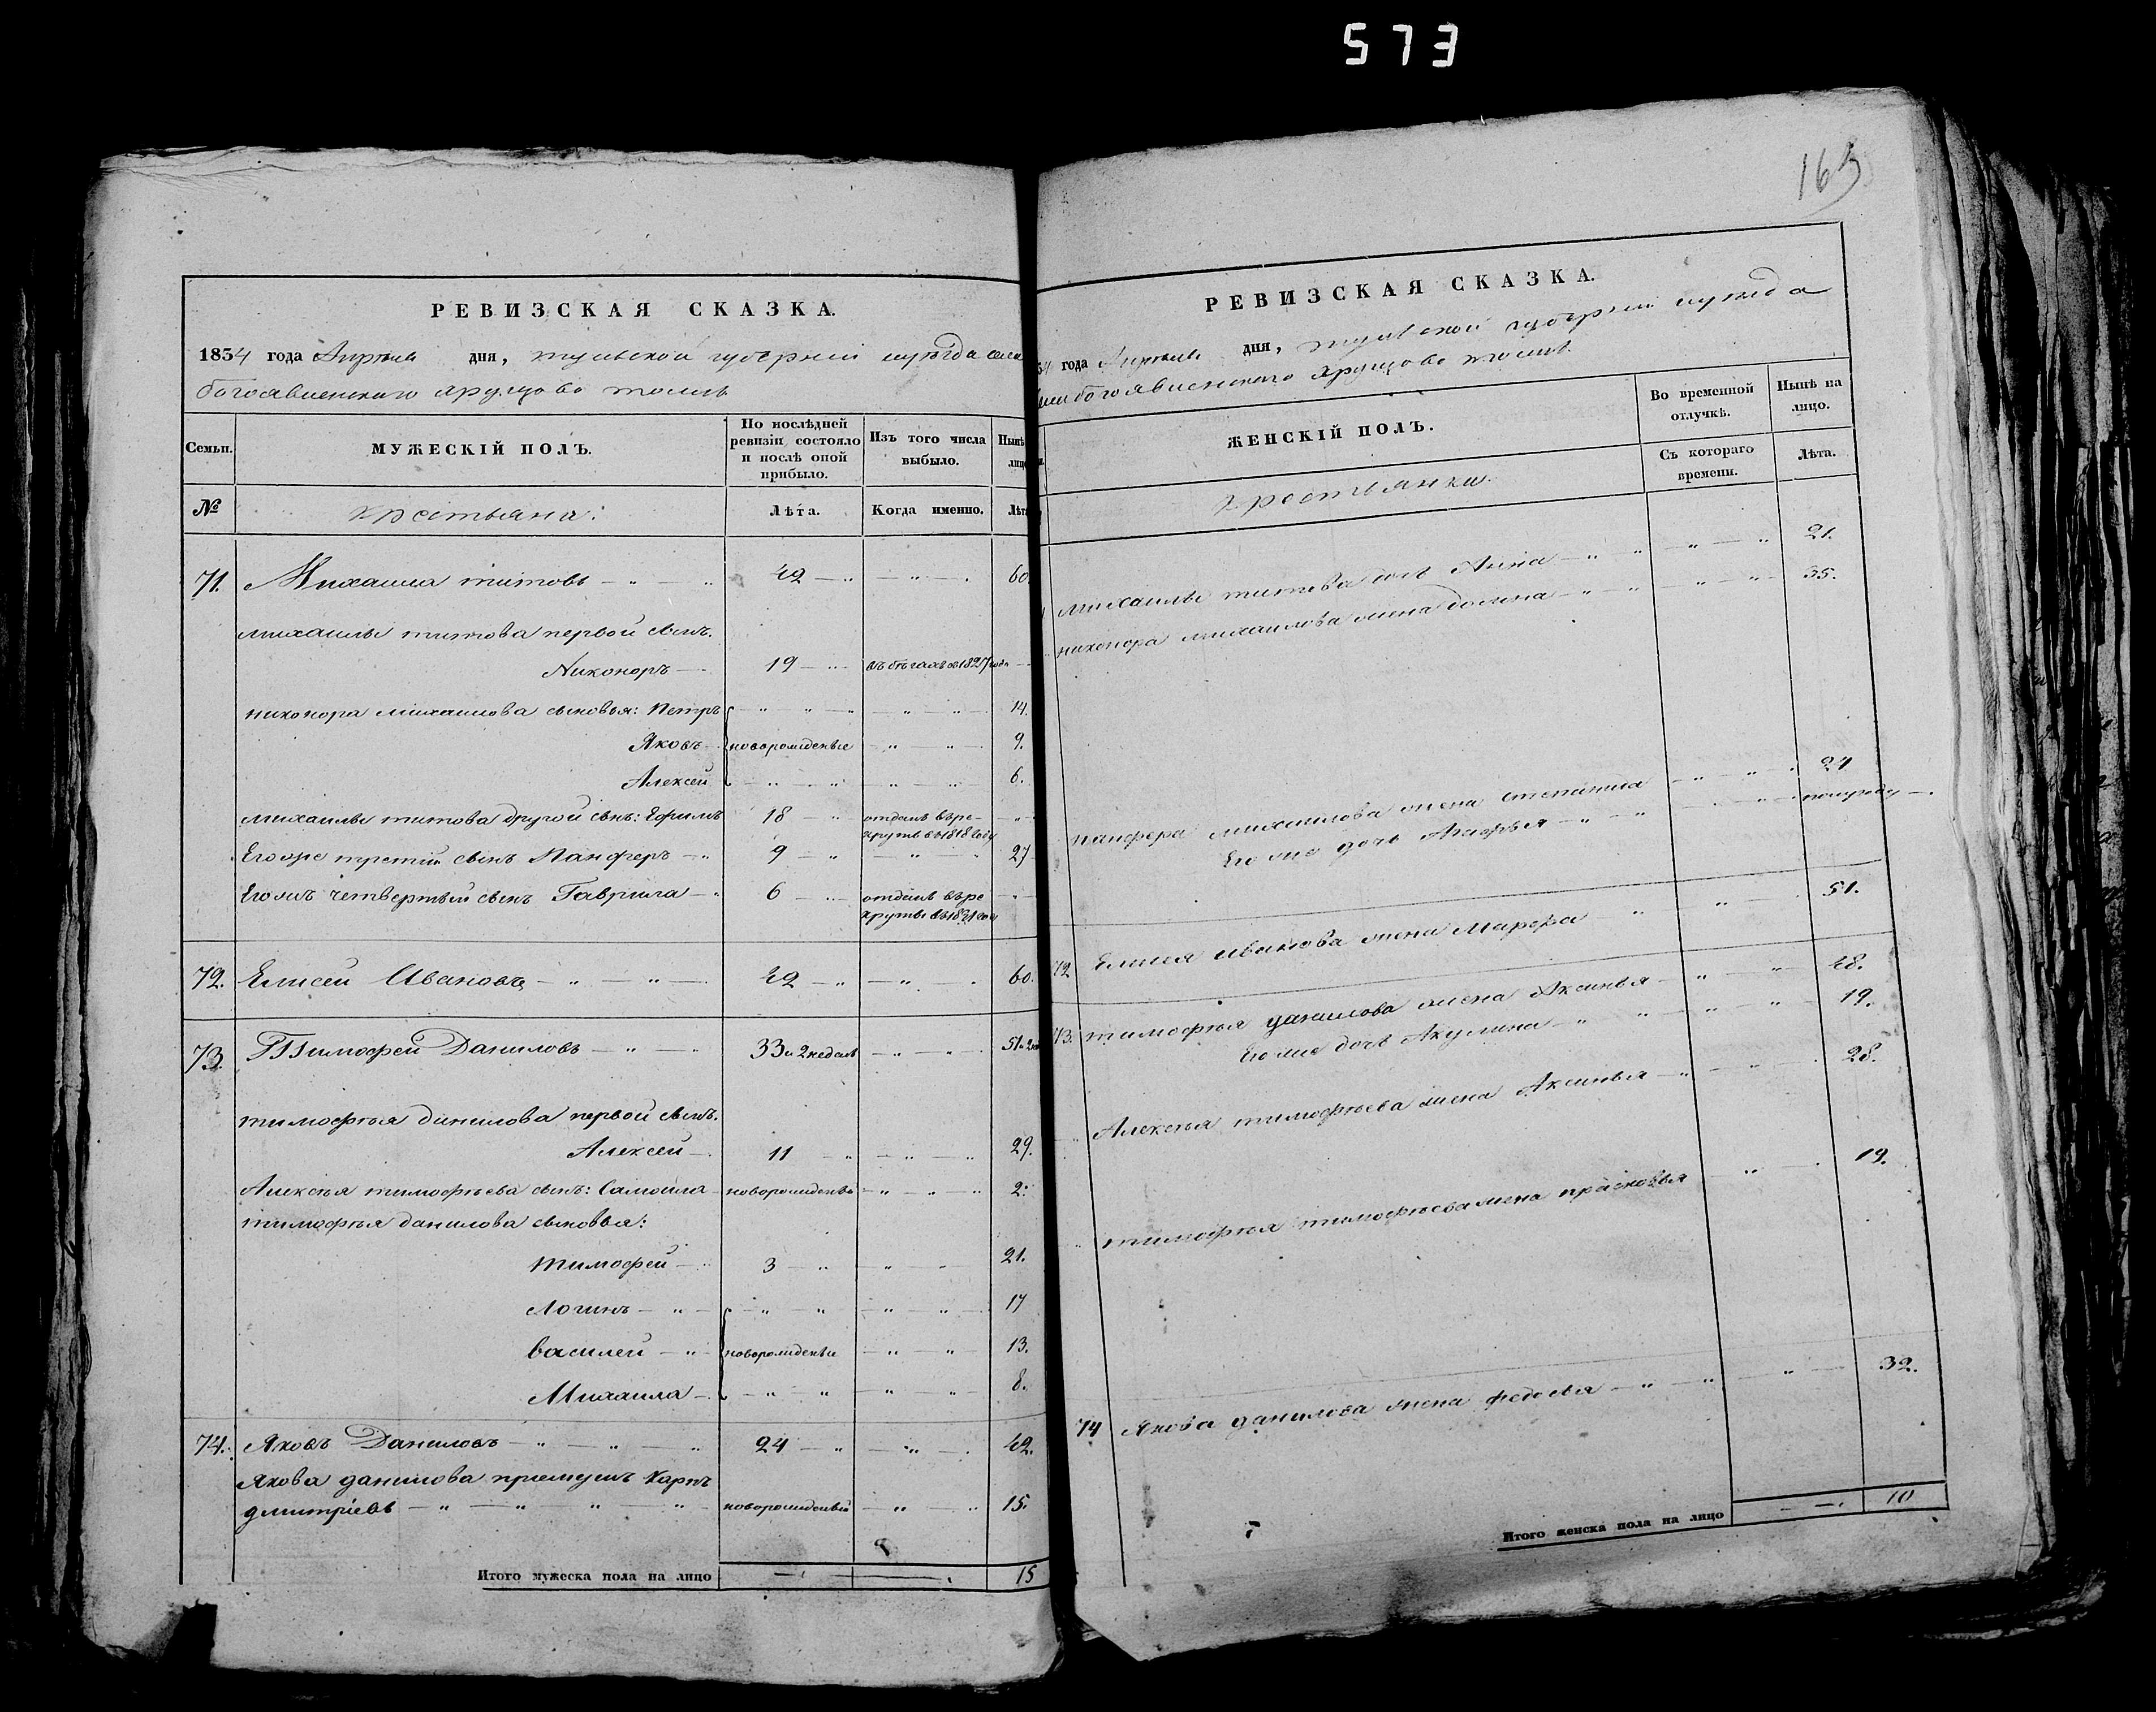 573
РЕВИЗСКАЯ СКАЗКА.
1834 года Апреля дня, тульской губерний села
богоявленскаго тожъ
Семьи. МУЖЕСКІЙ ПОЛЪ. По послѣдней ревизіи состояло и послѣ оной прибыло. Изъ того числа выбыло. Нынѣ лицо
№ крестьяне: Лѣта. Когда именно. Лѣт
71. Михаила титовъ 42 60.
михаилы титова первой сынъ.
Никоноръ 19 въ бѣгахъ съ 1827 года
никонора михаилова сыновья: Петръ 14.
Яковъ новорожденые 9.
Алексей 6.
михаилы титова другой сынъ: Ефимъ 18 отданъ въ ре-
круты въ 1818 году
Егоже третий сынъ Панферъ 9 27
Егожъ четвертый сынъ Гаврила 6 отданъ въ ре
круты въ 1831 году
72. Елисей Ивановъ 42 60.
73. Тимофей Даниловъ 33 и 2 недель 51 и 2
тимофѣя данилова первой сынъ.
Алексей 11 29.
Алексѣя тимофѣева сынъ: Самойла новорожденый 2.
тимофѣя данилова сыновья:
тимофей 3 21.
Логинъ 17
василей новорожденые 13.
Михаила 8.
74. Яковъ Даниловъ 24 42.
Якова данилова приемушъ Карпъ
дмитріевъ новорожденый 15.
Итого мужеска пола на лицо 15
163
РЕВИЗСКАЯ СКАЗКА.
34 года Апреля дня, тульской губерний
богоявленскаго тожъ.
ЖЕНСКІЙ ПОЛЪ. Во временной отлучкѣ. Нынѣ на лицо.
Съ котораго времени. Лѣта.
крестьянки.
михаилы титова дочь Анна 21.
никонора михаилова жена домна 35.
панфера михаилова жена степанида 24
Его же дочь Агафья полугоду
72 Елисея иванова жена марфа 51.
73. тимофѣя данилова жена Аксинья 48.
Его же дочь Акулина 19.
Алексѣя тимофѣева жена Аксинья 28.
тимофѣя тимофѣева жена прасковья 19.
74 Якова данилова жена федосья 32.
Итого женска пола на лицо 10